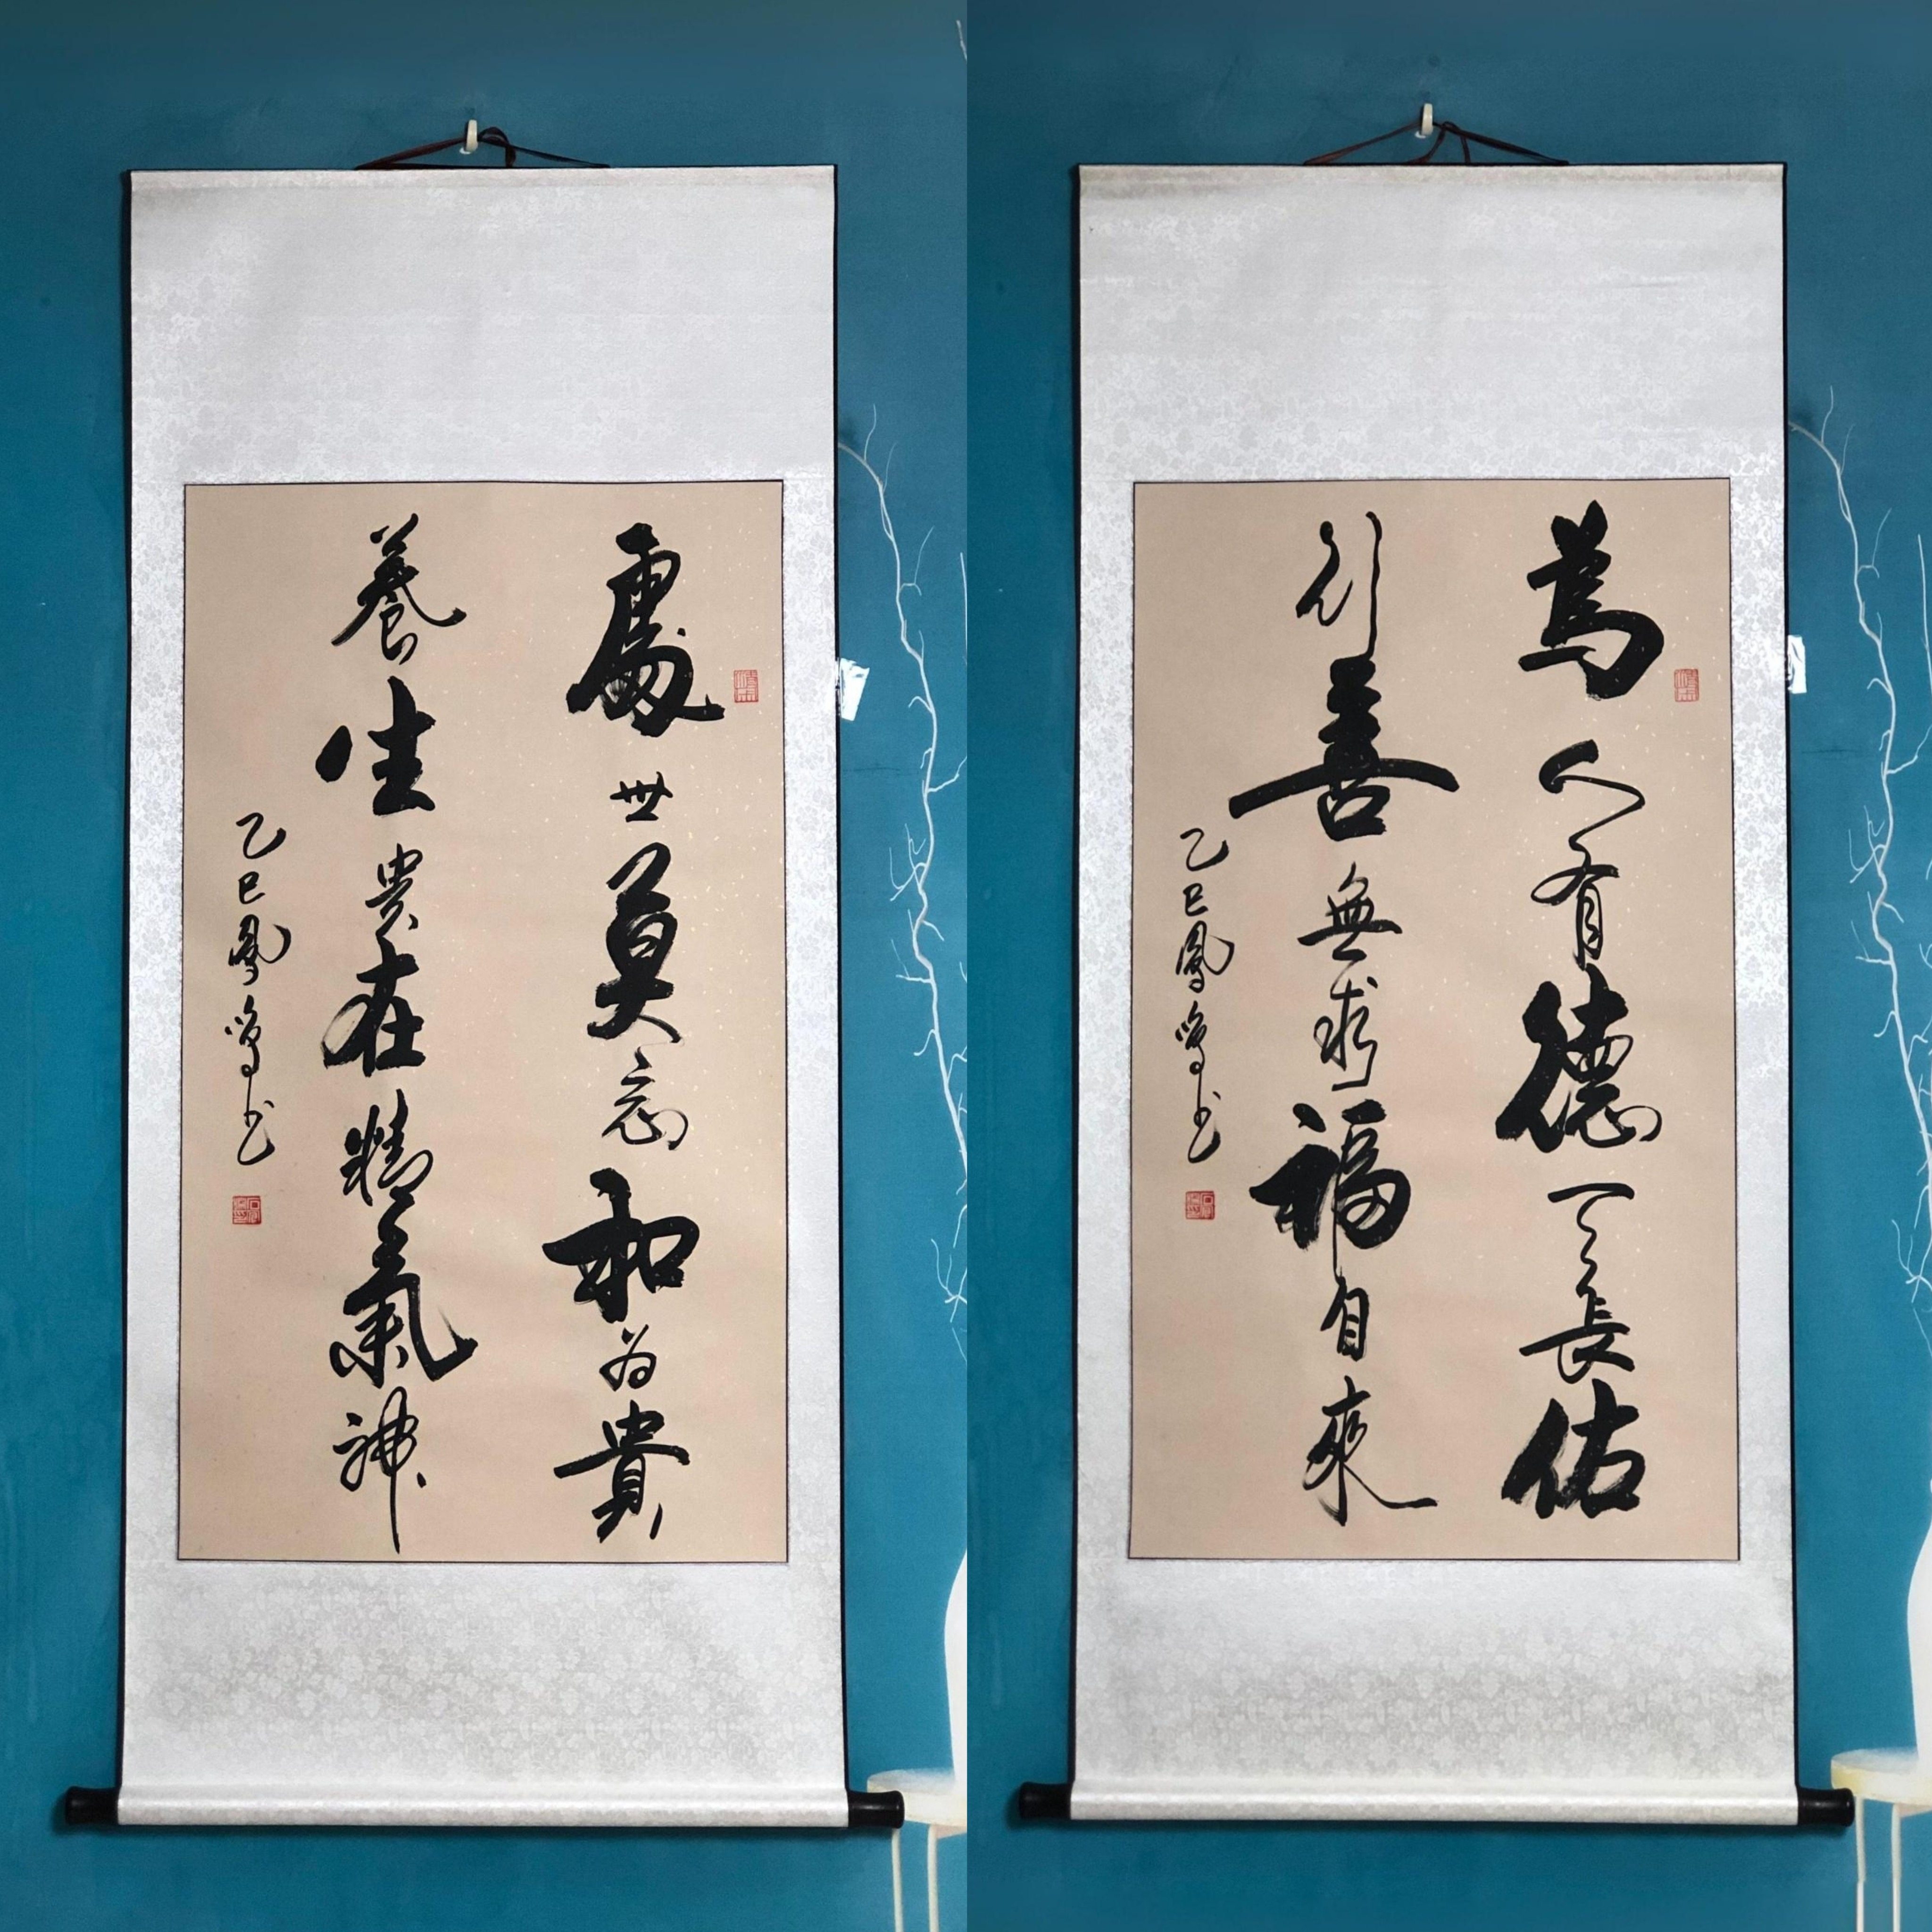 處世莫忘和為貴
養生贵在精氣神
乙巳鳳鳴书
為人有德天長佑
行善無求福自來
乙巳鳳鳴书